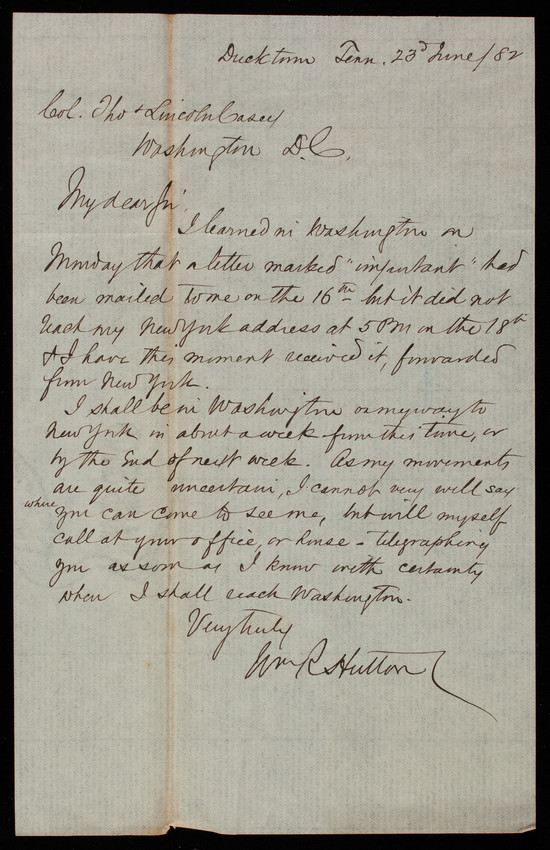 Ducktown Tenn. 23d June/82
Col. Thos Lincoln Casey
Washington D.C.
My dear Sir,
I learned in Washington on
Monday that a letter marked "important" had
been mailed to me on the 16th but it did not
reach my New York address at 5 PM on the 18th
& I have this moment received it, forwarded
from New York.
I shall be in Washington on my way to
New York in about a week from this time, or
by the End of next week. As my movements
are quite uncertain, I cannot very well say
where you can come to see me, but will myself
call at your office, or house - telegraphing
you as soon as I know with certainty
when I shall reach Washington.
Very truly
Wm R Hutton